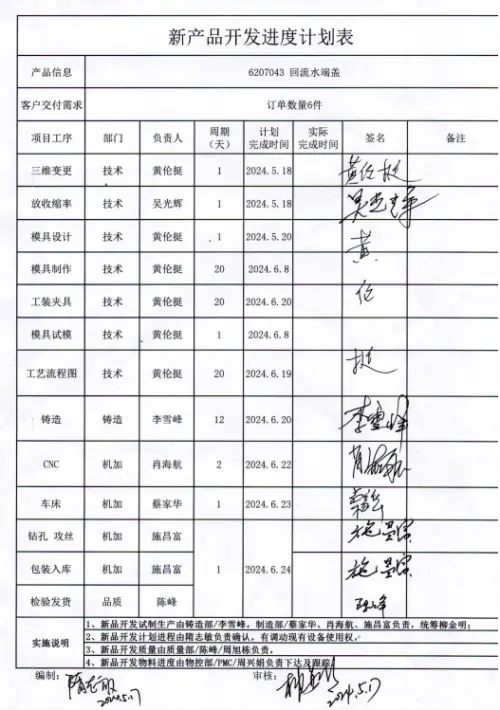 新产品开发进度计划表
产品信息 6207043 回流水端盖
客户交付需求 订单数量6件
项目工序 部门 负责人 周期（天） 计划完成时间 实际完成时间 签名 备注
三维变更 技术 黄伦挺 1 2024.5.18 黄伦挺
放收缩率 技术 吴光辉 1 2024.5.18 吴光辉
模具设计 技术 黄伦挺 1 2024.5.20 黄
模具制作 技术 黄伦挺 20 2024.6.8
工装夹具 技术 黄伦挺 20 2024.6.20 伦
模具试模 技术 黄伦挺 1 2024.6.8
工艺流程图 技术 黄伦挺 20 2024.6.19 挺
铸造 铸造 李雪峰 12 2024.6.20 李雪峰
CNC 机加 肖海航 2 2024.6.22 肖海航
车床 机加 蔡家华 1 2024.6.23
钻孔 攻丝 机加 施昌富 施昌富
包装入库 机加 施昌富 1 2024.6.24 施昌富
检验发货 品质 陈峰 陈峰
实施说明
1、新品开发试制生产由铸造部/李雪峰，制造部/蔡家华、肖海航、施昌富负责，统筹柳金明；
2、新品开发计划进程由隋志敏负责确认，有调动现有设备使用权，
3、新品开发质量由质量部/陈峰/周旭栋负责，
4、新品开发物料进度由物控部/PMC/周兴娟负责下达及跟踪
编制： 隋志敏 审核：
2024.5.17 2024.5.17